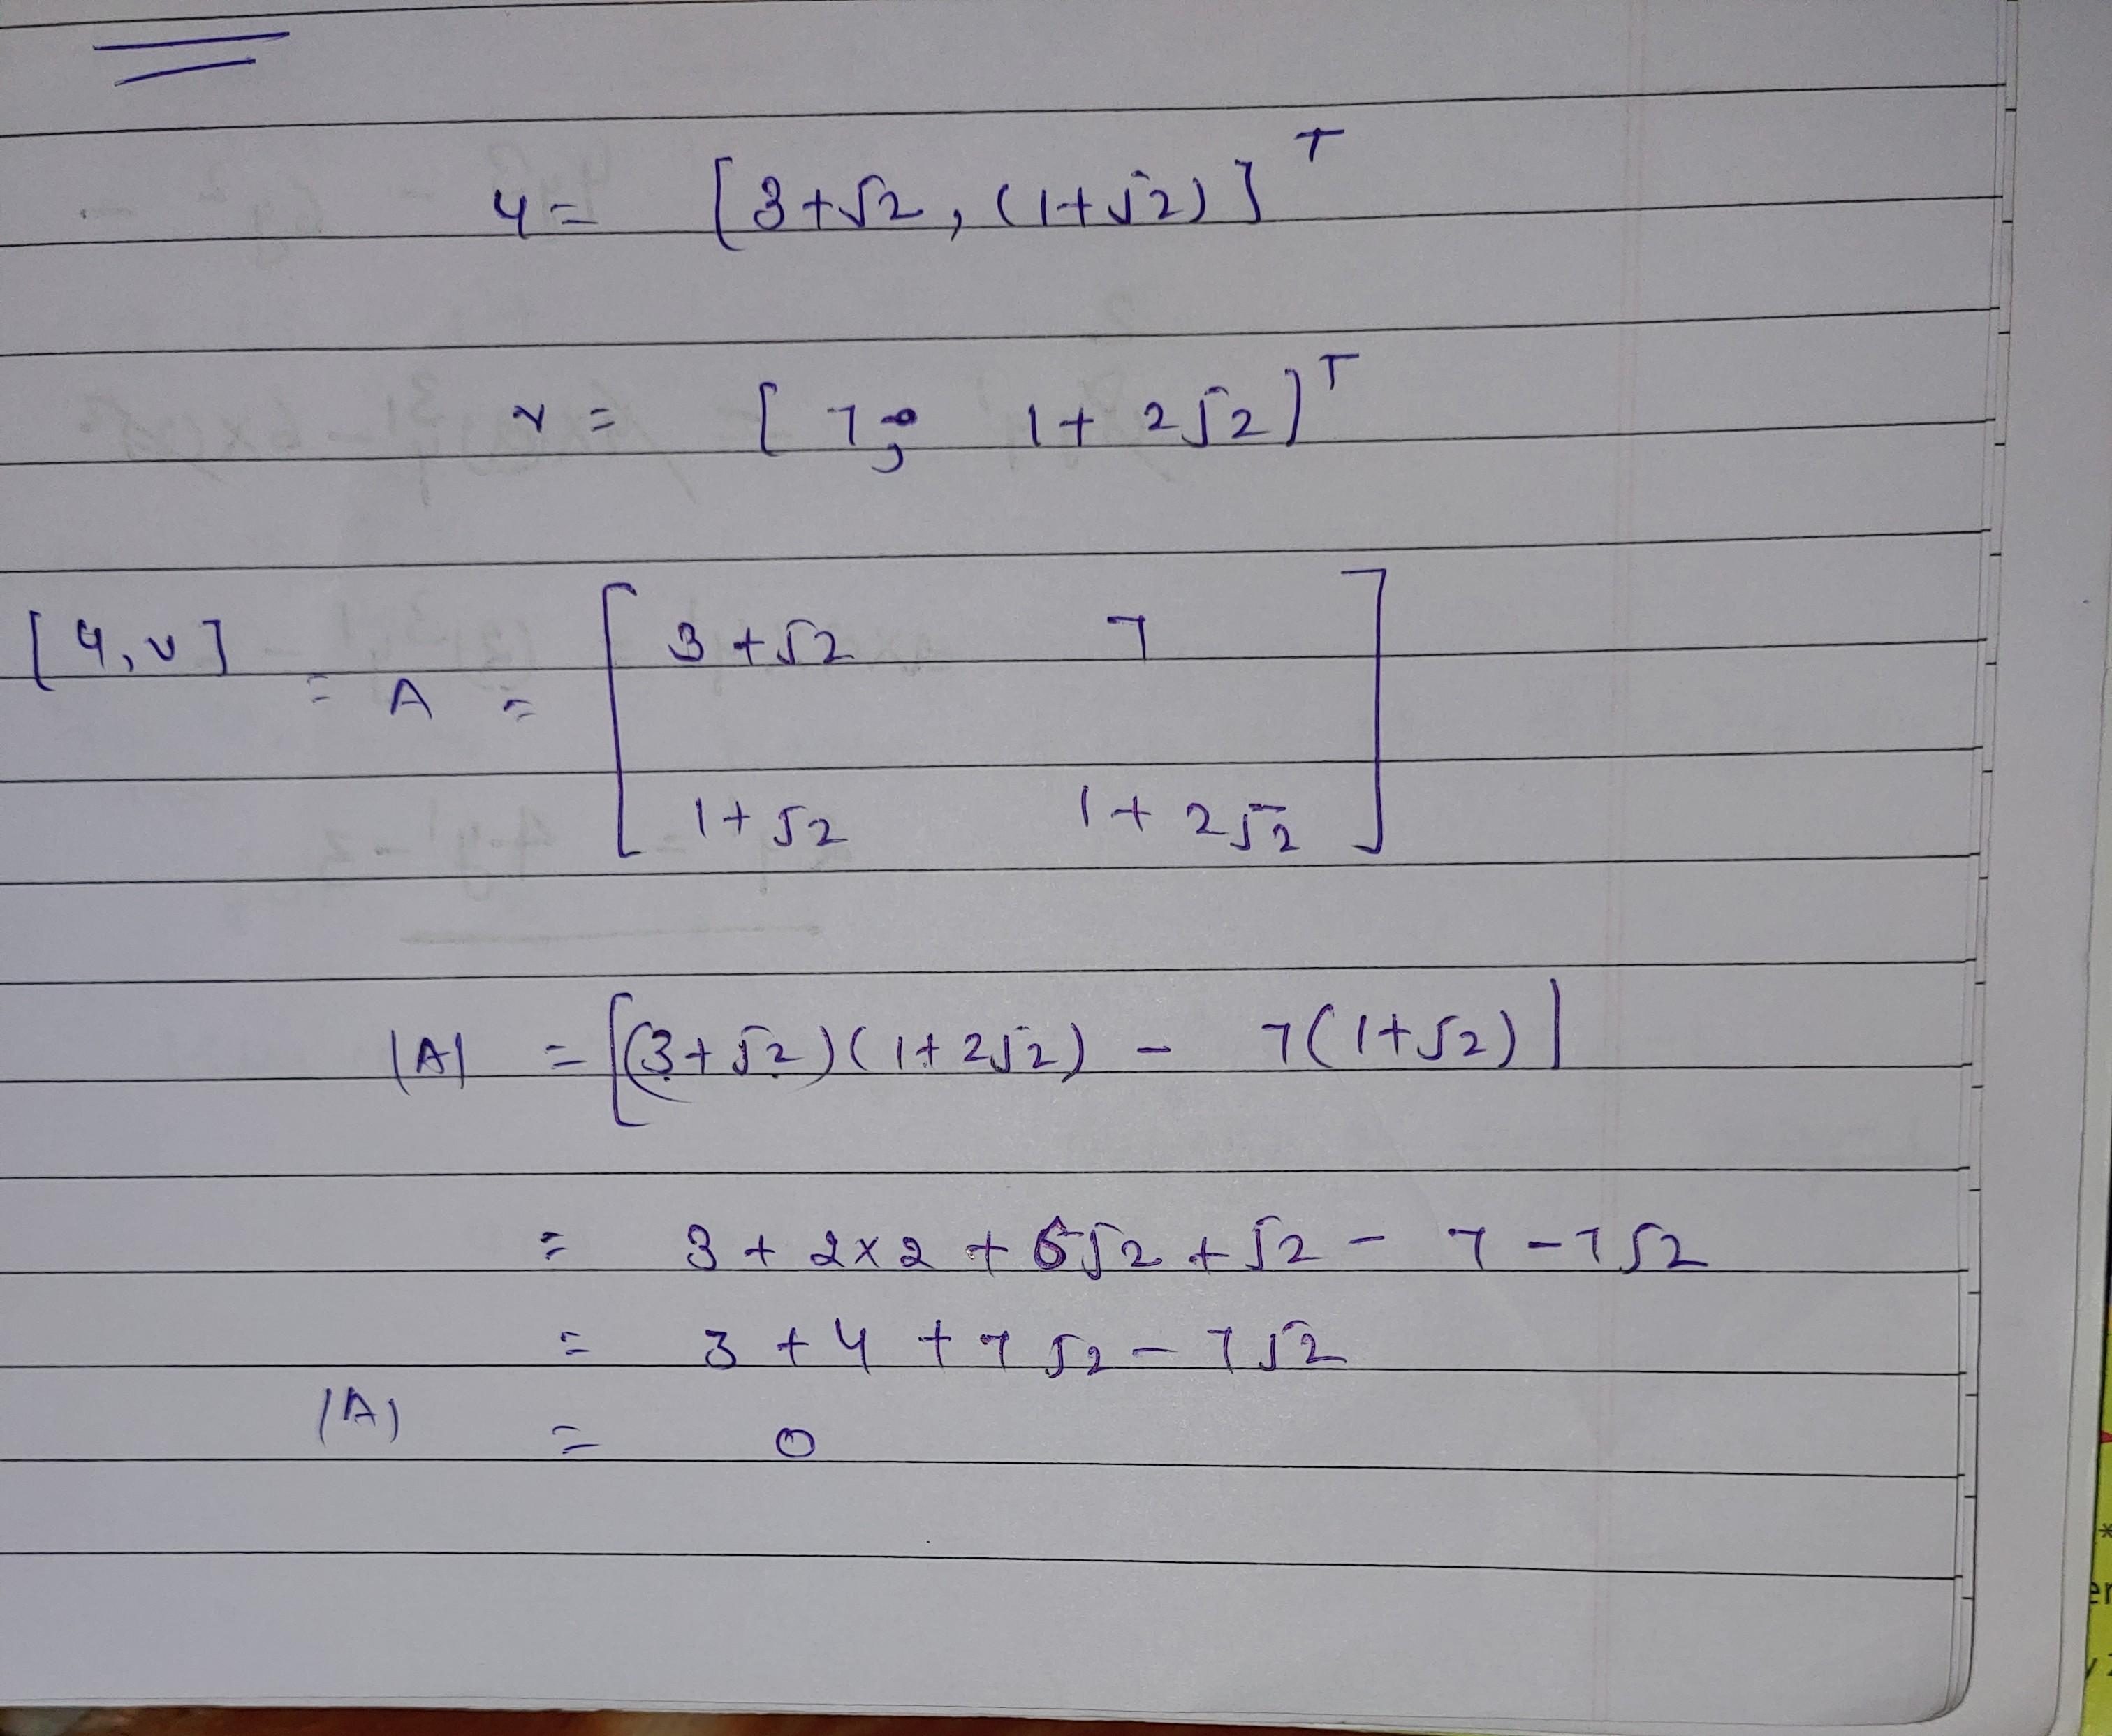 u = [3+√2, (1+√2)]ᵀ
v = [7, 1+2√2]ᵀ
[u,v] = A = [ 3+√2 7
1+√2 1+2√2 ]
|A| = [(3+√2)(1+2√2) - 7(1+√2)]
= 3 + 2×2 + 6√2 + √2 - 7 - 7√2
= 3 + 4 + 7√2 - 7√2
|A| = 0